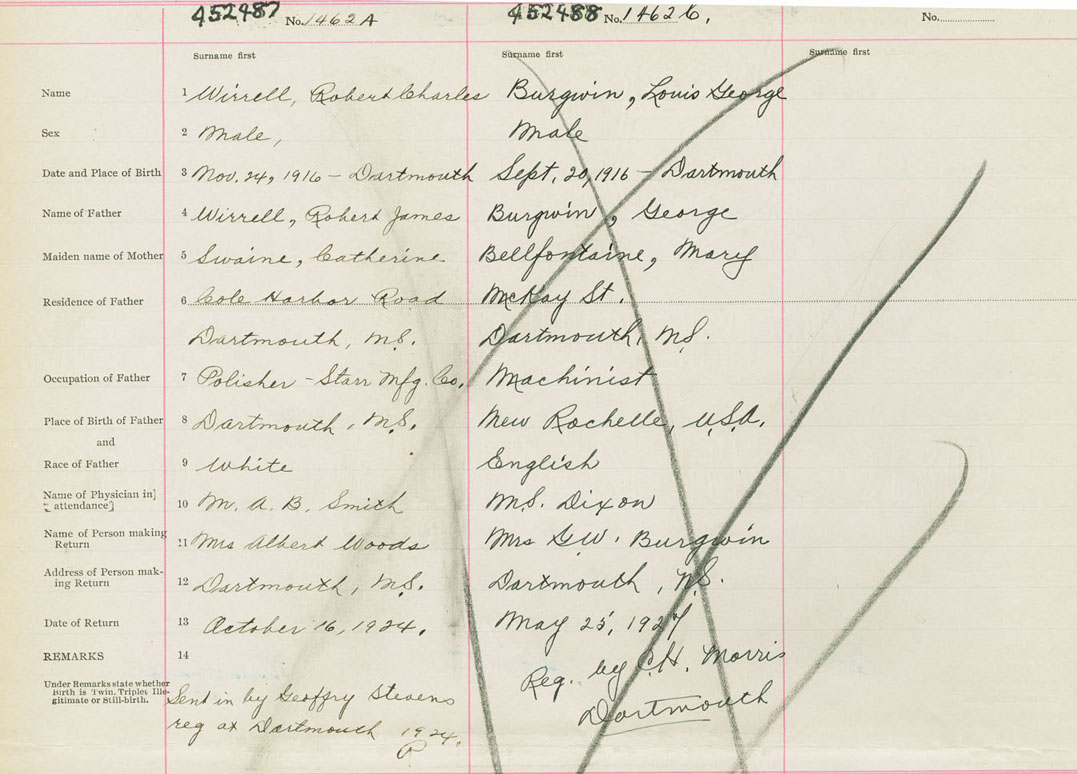 452487 No. 1462A 452488 No. 1462C. No.
Surname first Surname first Surname first
Name 1 Wirrell, Robert Charles Burgwin, Louis George
Sex 2 Male, Male
Date and Place of Birth 3 Nov. 24, 1916 - Dartmouth Sept. 20, 1916 - Dartmouth
Name of Father 4 Wirrell, Robert James Burgwin, George
Maiden name of Mother 5 Swaine, Catherine Bellfontaine, Mary
Residence of Father 6 Cole Harbor Road McKay St.
Dartmouth, N.S. Dartmouth, N.S.
Occupation of Father 7 Polisher - Starr Mfg. Co. Machinist
Place of Birth of Father 8 Dartmouth, N.S. New Rochelle, U.S.A.
and
Race of Father 9 White English
Name of Physician in]
attendance] 10 M. A. B. Smith M.S. Dixon
Name of Person making
Return 11 Mrs Albert Woods Mrs G.W. Burgwin
Address of Person mak-
ing Return 12 Dartmouth, N.S. Dartmouth, N.S.
Date of Return 13 October 16, 1924. May 25, 1927
REMARKS 14 Reg. by C.H. Morris
Under Remarks state whether
Birth is Twin, Triplet Ille-
gitimate or Still-birth.
Sent in by Geoffry Stevens Dartmouth
reg at Dartmouth 1924.